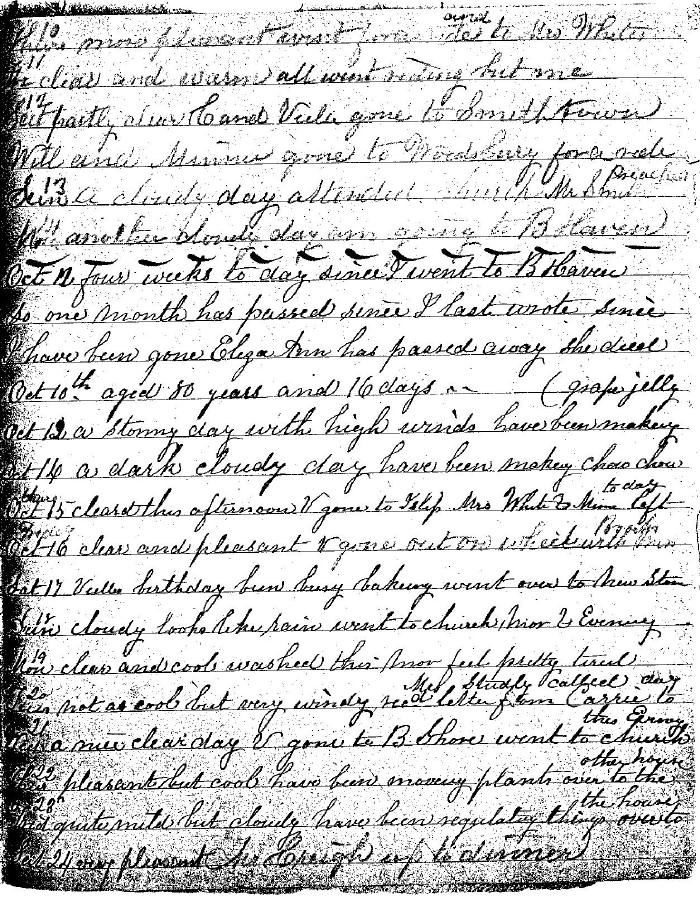 10 more pleasant went for a ride to Mrs Whites
11 clear and warm all went riding but me
12 partly clear C and Vulu gone to Smithtown
Will and Minnie gone to Woodsbury for a ride
Sun 13 a cloudy day attended church Mr Preacher
another cloudy day am going to B Haven
Oct 12 four weeks to day since I went to B Haven
So one month has passed since I last wrote since
I have been gone Eliza Ann has passed away she died
Oct 10th aged 80 years and 16 days (grape jelly
Oct 12 a stormy day with high winds have been makeing
Oct 14 a dark cloudy day have been makeing chow chow
Oct 15 cleard this afternoon V gone to Islip Mrs White & Mime left to day
Oct 16 clear and pleasant V gone out on wheel with
Sat 17 birthday bun busy bakeing went over to New Store
Sun 18 cloudy looks like rain went to church Mor & Evening
Mon 19 clear and cool washed this Mor feel pretty tired
20 not as cool but very windy recd letter from Carrie Mrs Studly called to day
21 a nice clear day V gone to B Shore went to church this Evening
22 pleasant but cool have been moveing plants over to the other house
quite mild but cloudy have been regulateing things over to the house
24 very pleasant up to dinner